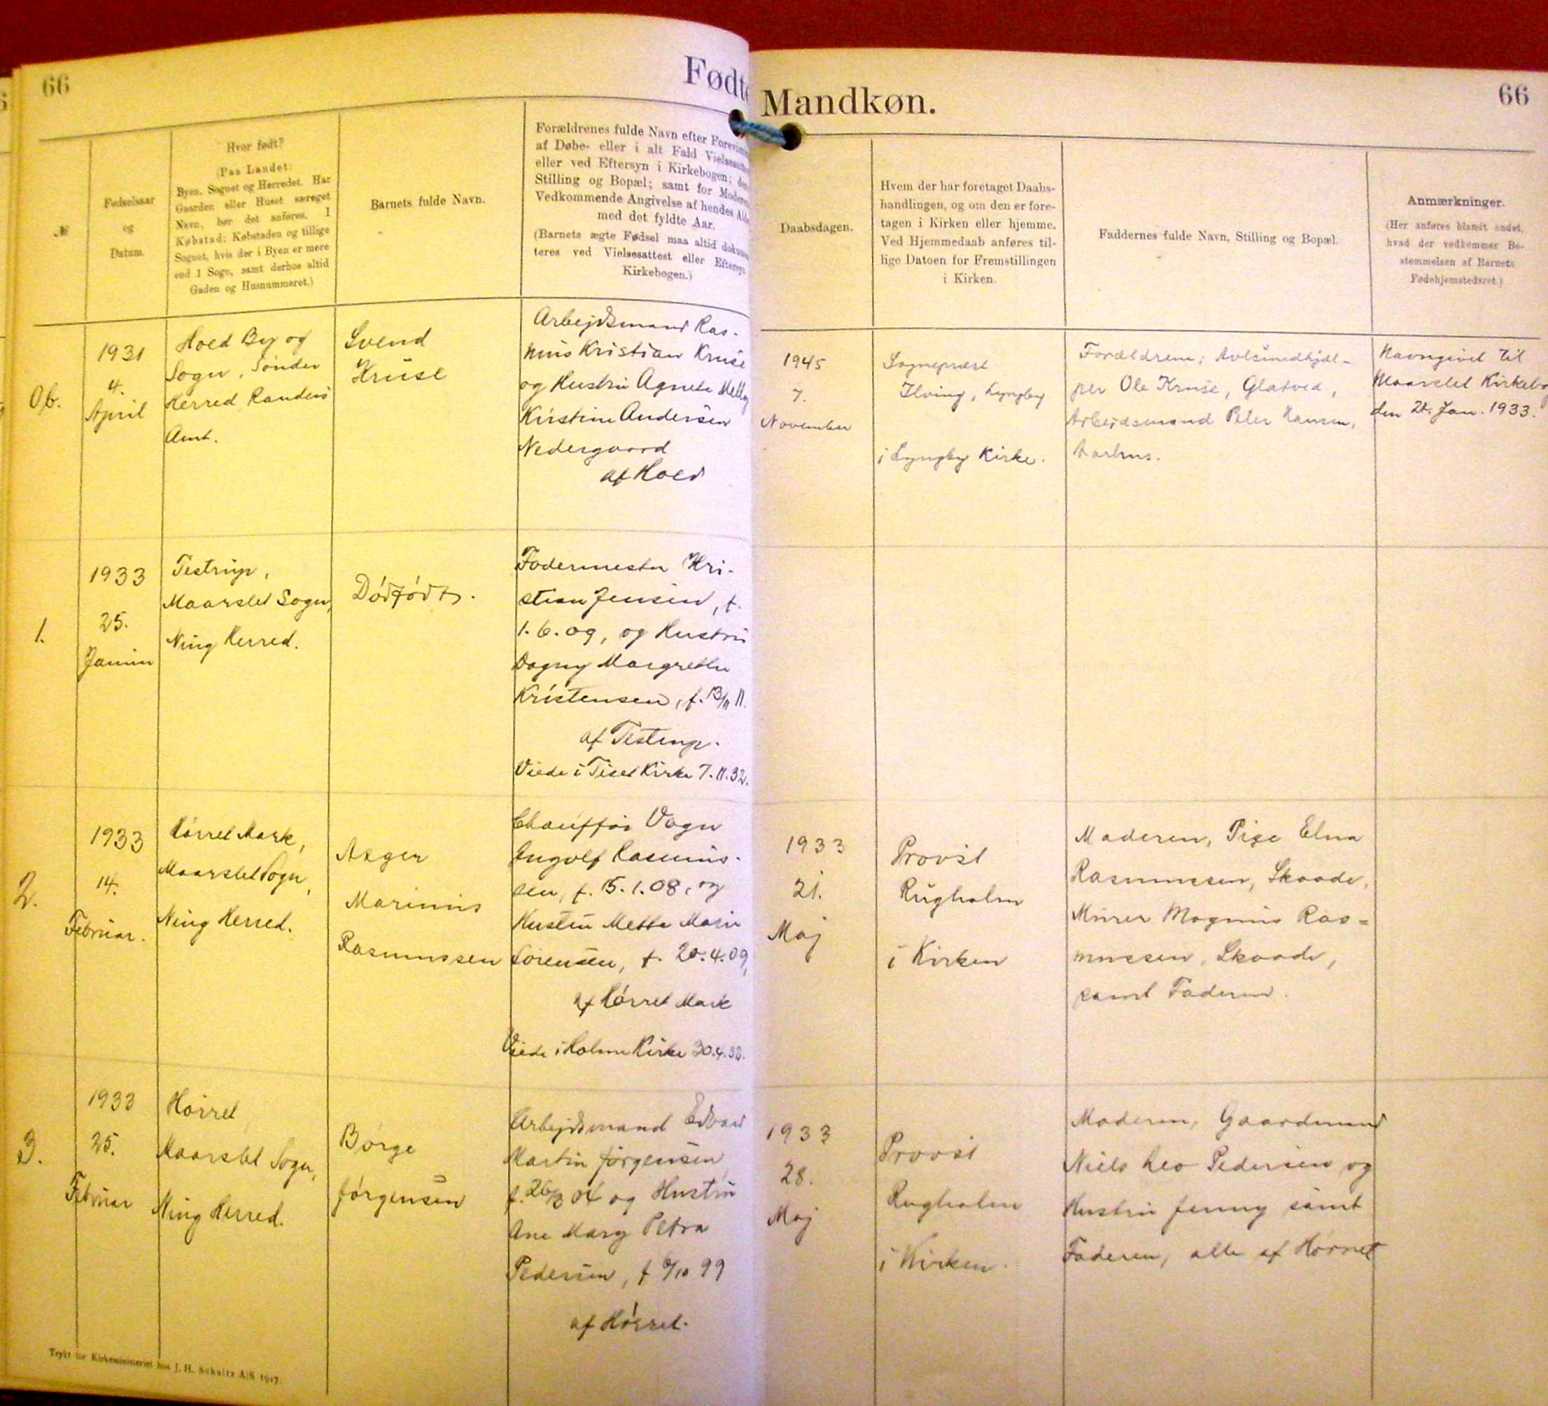 66
Fødte
Mandkøn.
66
№
Fødselsaar
og
Datum.
Hvor født?
(Paa Landet:
Byen, Sognet og Herredet. Har
Gaarden eller Huset særeget
Navn, bør det anføres. I
Købstad: Købstaden og tillige
Sognet, hvis der i Byen er mere
end 1 Sogn, samt derhos altid
Gaden og Husnummeret.)
Barnets fulde Navn.
Forældrenes fulde Navn efter
af Døbe- eller i alt Fald
eller ved Eftersyn i Kirkebogen;
Stilling og Bopæl; samt for
Vedkommende Angivelse af hendes
med det fyldte Aar.
(Barnets ægte Fødsel maa altid
teres ved Vielsesattest eller
Kirkebogen.)
Daabsdagen.
Hvem der har foretaget Daabs-
handlingen, og om den er fore-
tagen i Kirken eller hjemme.
Ved Hjemmedaab anføres til-
lige Datoen for Fremstillingen
i Kirken.
Faddernes fulde Navn, Stilling og Bopæl.
Anmærkninger.
(Her anføres blandt andet,
hvad der vedkommer Be-
stemmelsen af Barnets
Fødehjemstedsret.)
0b.
1931
4.
April
Hoed By og
Sogn, Sønder
Herred, Randers
Amt.
Svend
Kruse
Arbejdsmand Ras-
mus Kristian Kruse
og Hustru Agnete
Kirstine Andersen
Nedergaard
af Hoed
1945
7.
November
Sognepræst
Ilving, Lyngby
i Lyngby Kirke.
Forældrene;
Ole Kruse, Glatved,
Arbejdsmand Peter Hansen,
Aarhus.
Navngivet til
Maarslet Kirkebog
den 24. Jan. 1933.
1.
1933
25.
Januar
Testrup,
Maarslet Sogn,
Ning Herred.
Dødfødt.
Fodermester Kri-
stian Jensen, f.
1.6.09, og Hustru
Dagny Margrethe
Kristensen, f. 13/11 11.
af Testrup.
Viede i Tiset Kirke 7.11.32.
2.
1933
14.
Februar.
Hørret Mark,
Maarslet Sogn,
Ning Herred.
Asger
Marinus
Rasmussen
Chauffør Vagn
Ingolf Rasmus-
sen, f. 15.1.08, og
Hustru Mette Marie
Sørensen, f. 20.4.09,
af Hørret Mark
Viede i Holme Kirke 30.4.32.
1933
21.
Maj
Provst
Rugholm
i Kirken
Moderen, Pige Elna
Rasmussen, Skaade,
Murer Magnus Ras=
mussen, Skaade,
samt Faderen.
3.
1933
25.
Februar
Hørret
Maarslet Sogn,
Ning Herred.
Børge
Jørgensen
Arbejdsmand Edvard
Martin Jørgensen
f. 26/3 04 og Hustru
Ane Mary Petra
Pedersen, f. 6/10 99
af Hørret.
1933
28.
Maj
Provst
Rugholm
i Kirken.
Moderen, Gaardmand
Niels Leo Pedersen og
Hustru Jenny samt
Faderen, alle af Hørret
Trykt for Kirkeministeriet hos J. H. Schultz A/S 1917.